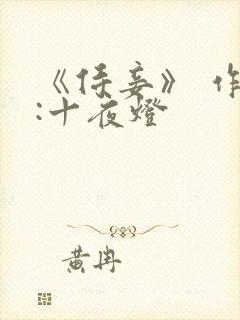 《侍妾》 作
:十夜燈
黄冉